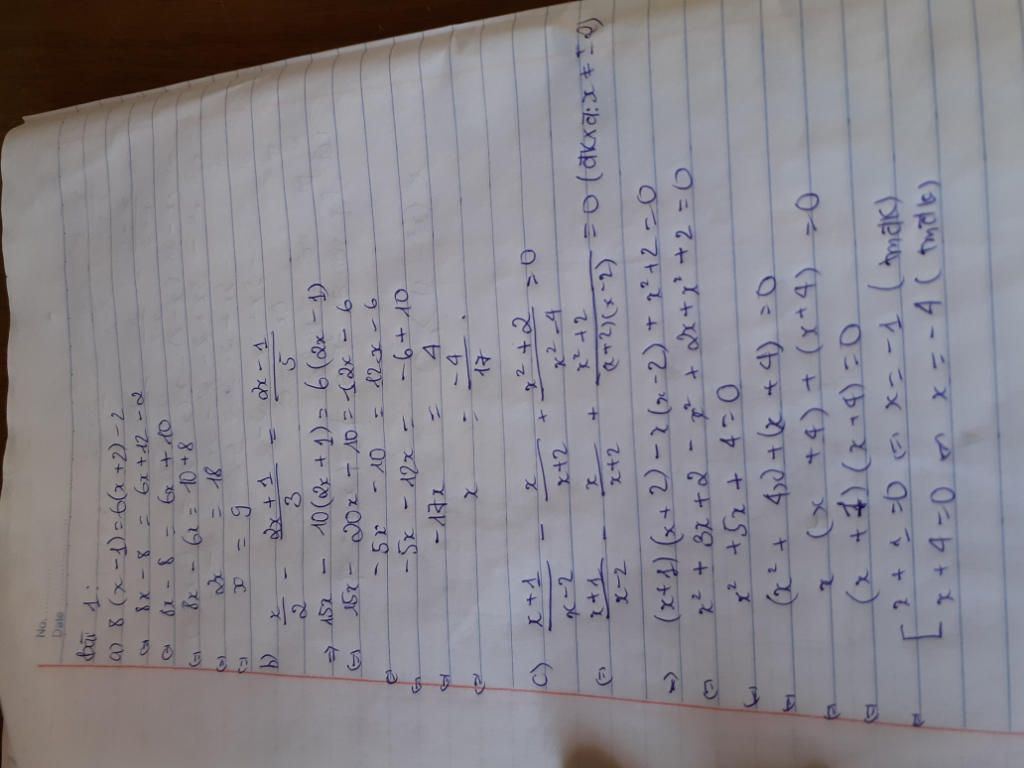 No.
Date
Bài 1:
a) 8(x-1)=6(x+2)-2
⇔ 8x-8 = 6x+12-2
⇔ 8x-8 = 6x+10
⇔ 8x-6x = 10+8
⇔ 2x = 18
⇔ x = 9
b) x/2 - (2x+1)/3 = (2x-1)/5
⇒ 15x - 10(2x+1) = 6(2x-1)
⇔ 15x - 20x - 10 = 12x - 6
⇔ -5x - 10 = 12x - 6
⇔ -5x - 12x = -6+10
⇔ -17x = 4
⇔ x = -4/17.
c) (x+1)/(x-2) - x/(x+2) + (x²+2)/(x²-4) = 0
⇔ (x+1)/(x-2) - x/(x+2) + (x²+2)/((x+2)(x-2)) = 0 (đkxđ: x ≠ ± 2)
⇒ (x+1)(x+2) - x(x-2) + x²+2 = 0
⇔ x² + 3x+2 - x² + 2x + x² + 2 = 0
⇔ x² + 5x + 4 = 0
⇔ (x² + 4x) + (x + 4) = 0
⇔ x (x + 4) + (x+4) = 0
⇔ (x + 1) (x+4) = 0
⇔ [ x + 1 = 0 ⇔ x = -1 (tmđk)
x + 4 = 0 ⇔ x = -4 (tmđk)